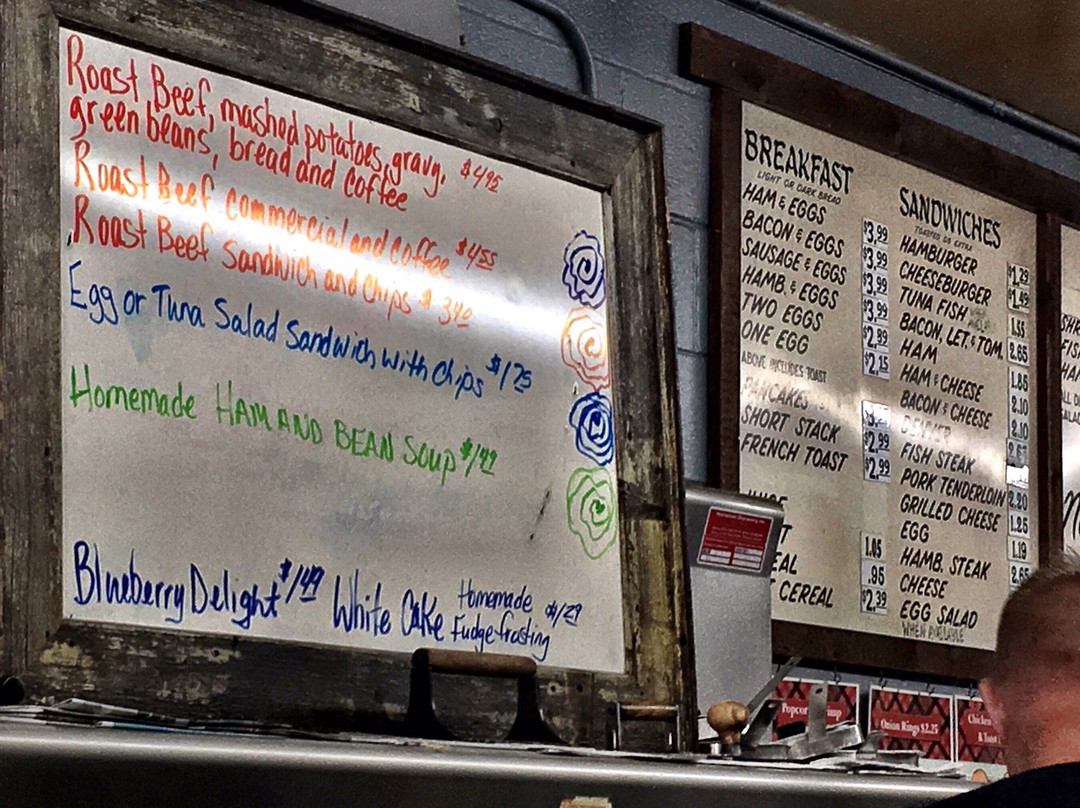 Roast Beef, mashed potatoes, gravy, $4.95
green beans, bread and coffee
Roast Beef commercial and coffee $4.55
Roast Beef Sandwich and chips $3.40
Egg or Tuna Salad Sandwich with chips $1.75
Homemade HAM AND BEAN Soup $1.49
Blueberry Delight $1.49 White Cake Homemade $1.29
Fudge frosting
BREAKFAST
LIGHT OR DARK BREAD
HAM & EGGS $3.99
BACON & EGGS $3.99
SAUSAGE & EGGS $3.99
HAMB. & EGGS $3.99
TWO EGGS $2.89
ONE EGG $2.15
ABOVE INCLUDES TOAST
PANCAKES
SHORT STACK $2.99
FRENCH TOAST $2.99
1.05
.95
CEREAL $2.39
SANDWICHES
TOASTED
EXTRA
HAMBURGER $1.29
CHEESEBURGER $1.49
TUNA FISH 1.55
BACON, LET. & TOM. 2.65
HAM 1.85
HAM & CHEESE 2.10
BACON & CHEESE 2.10
DENVER
FISH STEAK
PORK TENDERLOIN 2.20
GRILLED CHEESE 1.25
EGG 1.19
HAMB. STEAK 2.65
CHEESE
EGG SALAD
WHEN AVAILABLE
Onion Rings $2.25
Chicken